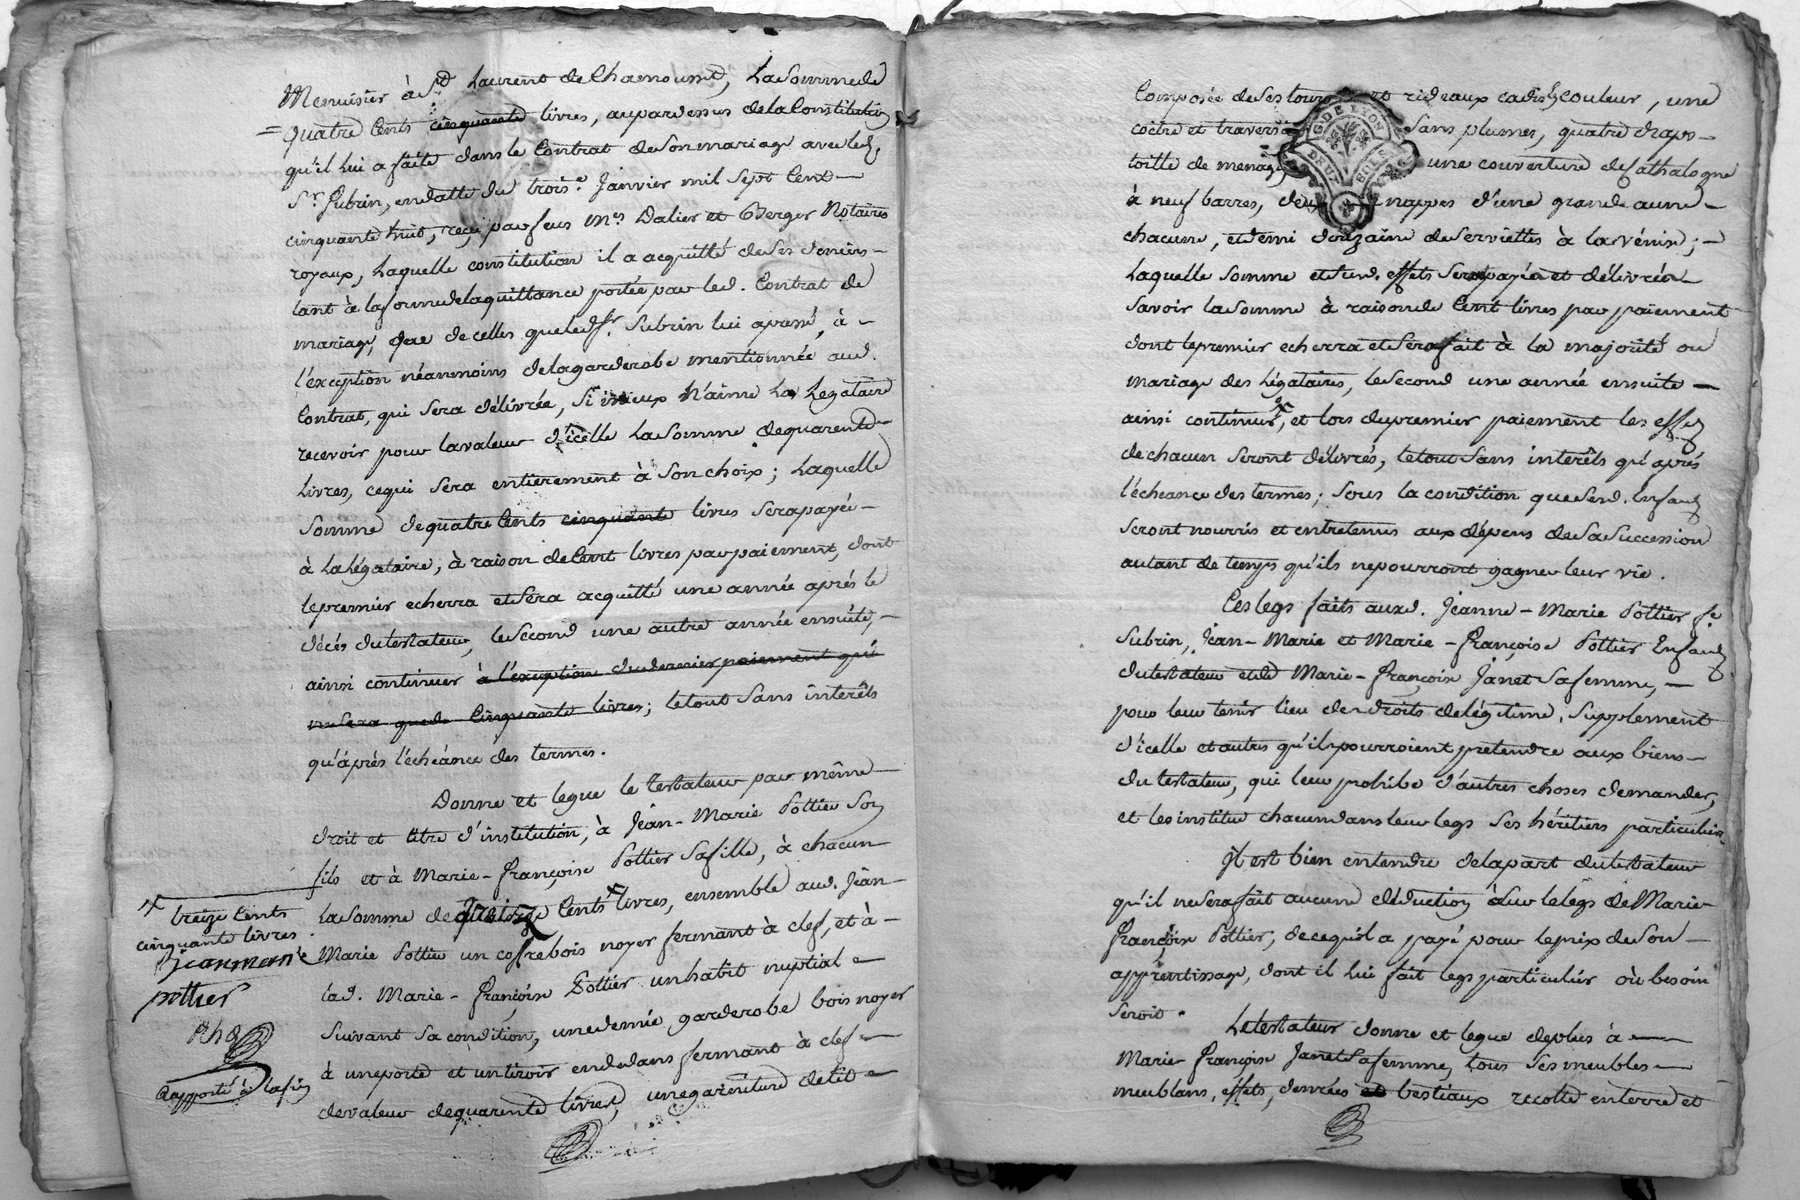 Menuisier à St Laurent de Chamousset, La Somme de
quatre Cents cinquante livres, au pardessus de la Constitution
qu'il lui a faite dans le Contrat de Son mariage avec led.
Sr. Subrin, en datte du trois.e Janvier mil Sept Cent
cinquante huit, reçu par feus Mes Dalier et Berger Notaires
royaux, Laquelle constitution il a acquitté de Ses deniers
tant à la forme de la quittance portée par led. Contrat de
mariage, que de celles que led. Sr. Subrin lui a passé, à
l'exception néanmoins de la garderobe mentionnée aud.
Contrat, qui Sera délivrée, Si mieux N'aime La Légataire
recevoir pour la valeur d'icelle La Somme de quarente
Livres, ce qui Sera entièrement à Son choix; Laquelle
Somme de quatre Cents cinquante livres Sera payée
à La Légataire, à raison de Cent livres par paiement, dont
le premier echerra et Sera acquitté une année après le
décès du testateur, le Second une autre année ensuite,
ainsi continuer à l'exception du dernier paiement qui
ne Sera que de Cinquante livres; le tout Sans intérêts
qu'après l'échéance des termes.
Donne et legue le testateur par même
droit et titre d'institution, à Jean-Marie Pottier Son
fils et à Marie-françoise Pottier Sa fille, à chacun
La Somme de quinze Cents livres, ensemble aud. Jean
Marie Pottier un coffre bois noyer fermant à clef, et à
lad. Marie-françoise Pottier un habit nuptial
Suivant Sa condition, une demie garderobe bois noyer
à une porte et un tiroir en dedans fermant à clef
de valeur de quarente livres, une garniture de lit
treize Cents
cinquante livres
jeanmarie
pottier
Rapporté à la fin
Composée de Ses tours et rideaux cadis couleur, une
coëtre et traversa Sans plumes, quatre draps
toille de menage une couverture de Cathalogne
à neuf barres, deux nappes d'une grande aune
chacune, et demi douzaine de Serviettes à la vénise;
Laquelle Somme et Sud. effets Sera payée et délivrés
Savoir la Somme à raison de Cent livres par paiement
dont le premier echerra et Sera fait à la majorité ou
mariage des Légataires, le Second une année ensuite
ainsi continuer, et lors du premier paiement les effets
de chacun Seront délivrés, le tout Sans intérêts qu'après
l'écheance des termes; Sous la condition que Sesd. Enfants
Seront nourris et entretenus aux dépens de Sa Succession
autant de temps qu'ils ne pourront gagner leur vie.
Les legs faits auxd. Jeanne-Marie Pottier fe.
Subrin, Jean-Marie et Marie-françoise Pottier Enfants
du testateur et de Marie-françoise Janet Sa femme,
pour leur tenir lieu de droits de légitime, Supplement
d'icelle et autres qu'ils pourroient pretendre aux biens
du testateur, qui leur prohibe d'autres choses demander,
et les institue chacun dans leur legs Ses héritiers particuliers
Il est bien entendu de la part du testateur
qu'il ne Sera fait aucune déduction Sur le legs de Marie
françoise Pottier, de ce qu'il a payé pour le prix de Son
apprentissage, dont il lui fait legs particulier où besoin
Seroit.
Le testateur donne et legue de plus à
Marie françoise Janet Sa femme, tous Ses meubles
meublans, effets, denrées et bestiaux recolte en terre et
G. DE LYON
DEUX
SOLS